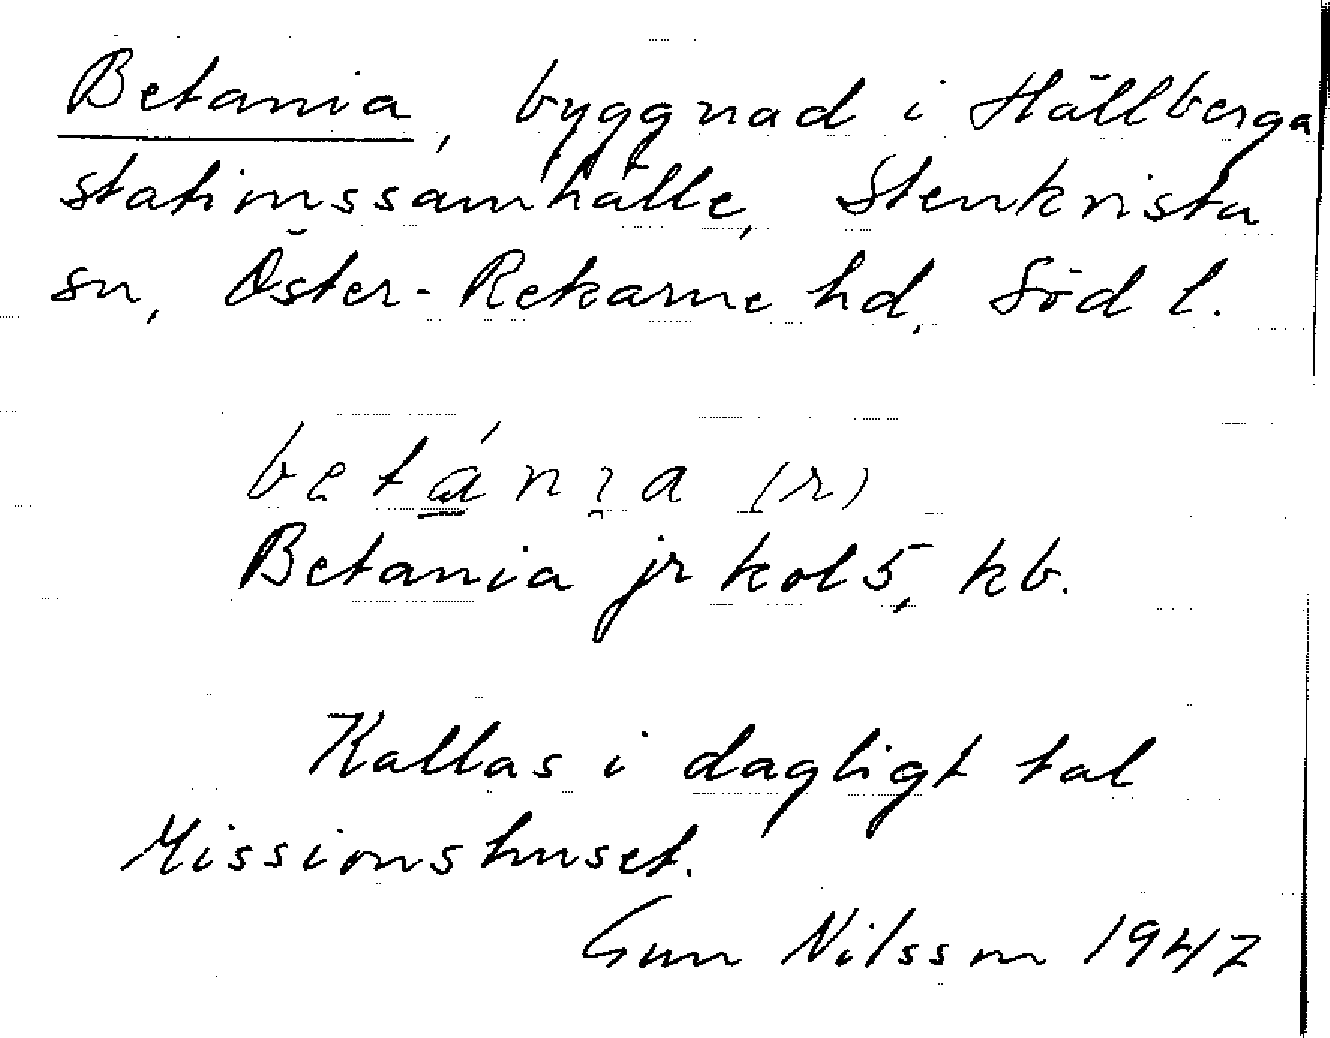 Betania, byggnad i Hällberga
stationssamhälle, Stenkvista
sn, Öster-Rekarne hd, Söd l.
betánia (r)
Betania jr kol 5, kb.
Kallas i dagligt tal
Missionshuset.
Gun Nilsson 1947